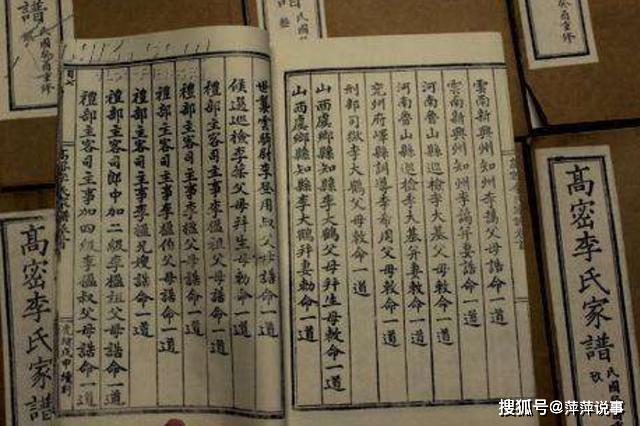 雲南新興州知州李 父母誥命一道
雲南新興州知州李 并妻誥命一道
河南魯山縣巡檢李大基父母敕命一道
河南魯山縣巡檢李大基并妻敕命一道
兗州府嶧縣訓導李希周父母敕命一道
刑部司獄李大鶴父母敕命一道
山西虞鄉縣知縣李大鶴父母并生母敕命一道
山西虞鄉縣知縣李大鶴并妻勅命一道
世襲雲騎尉李登用叔父母誥命一道
候選巡檢李 父母并生母勅命一道
禮部主客司主事李榅父母誥命一道
禮部主客司主事李榅祖父母誥命一道
禮部主客司主事李榅伯父母誥命一道
禮部主客司主事李榅兄嫂誥命一道
禮部主客司郎中加二級李榅祖父母誥命一道
禮部主客司主事加四級李榅叔父母誥命一道
光緒戊申續刊
高密李氏家譜
民國
高密李氏家譜
譜
民國癸酉重修
民國
搜狐号@萍萍说事